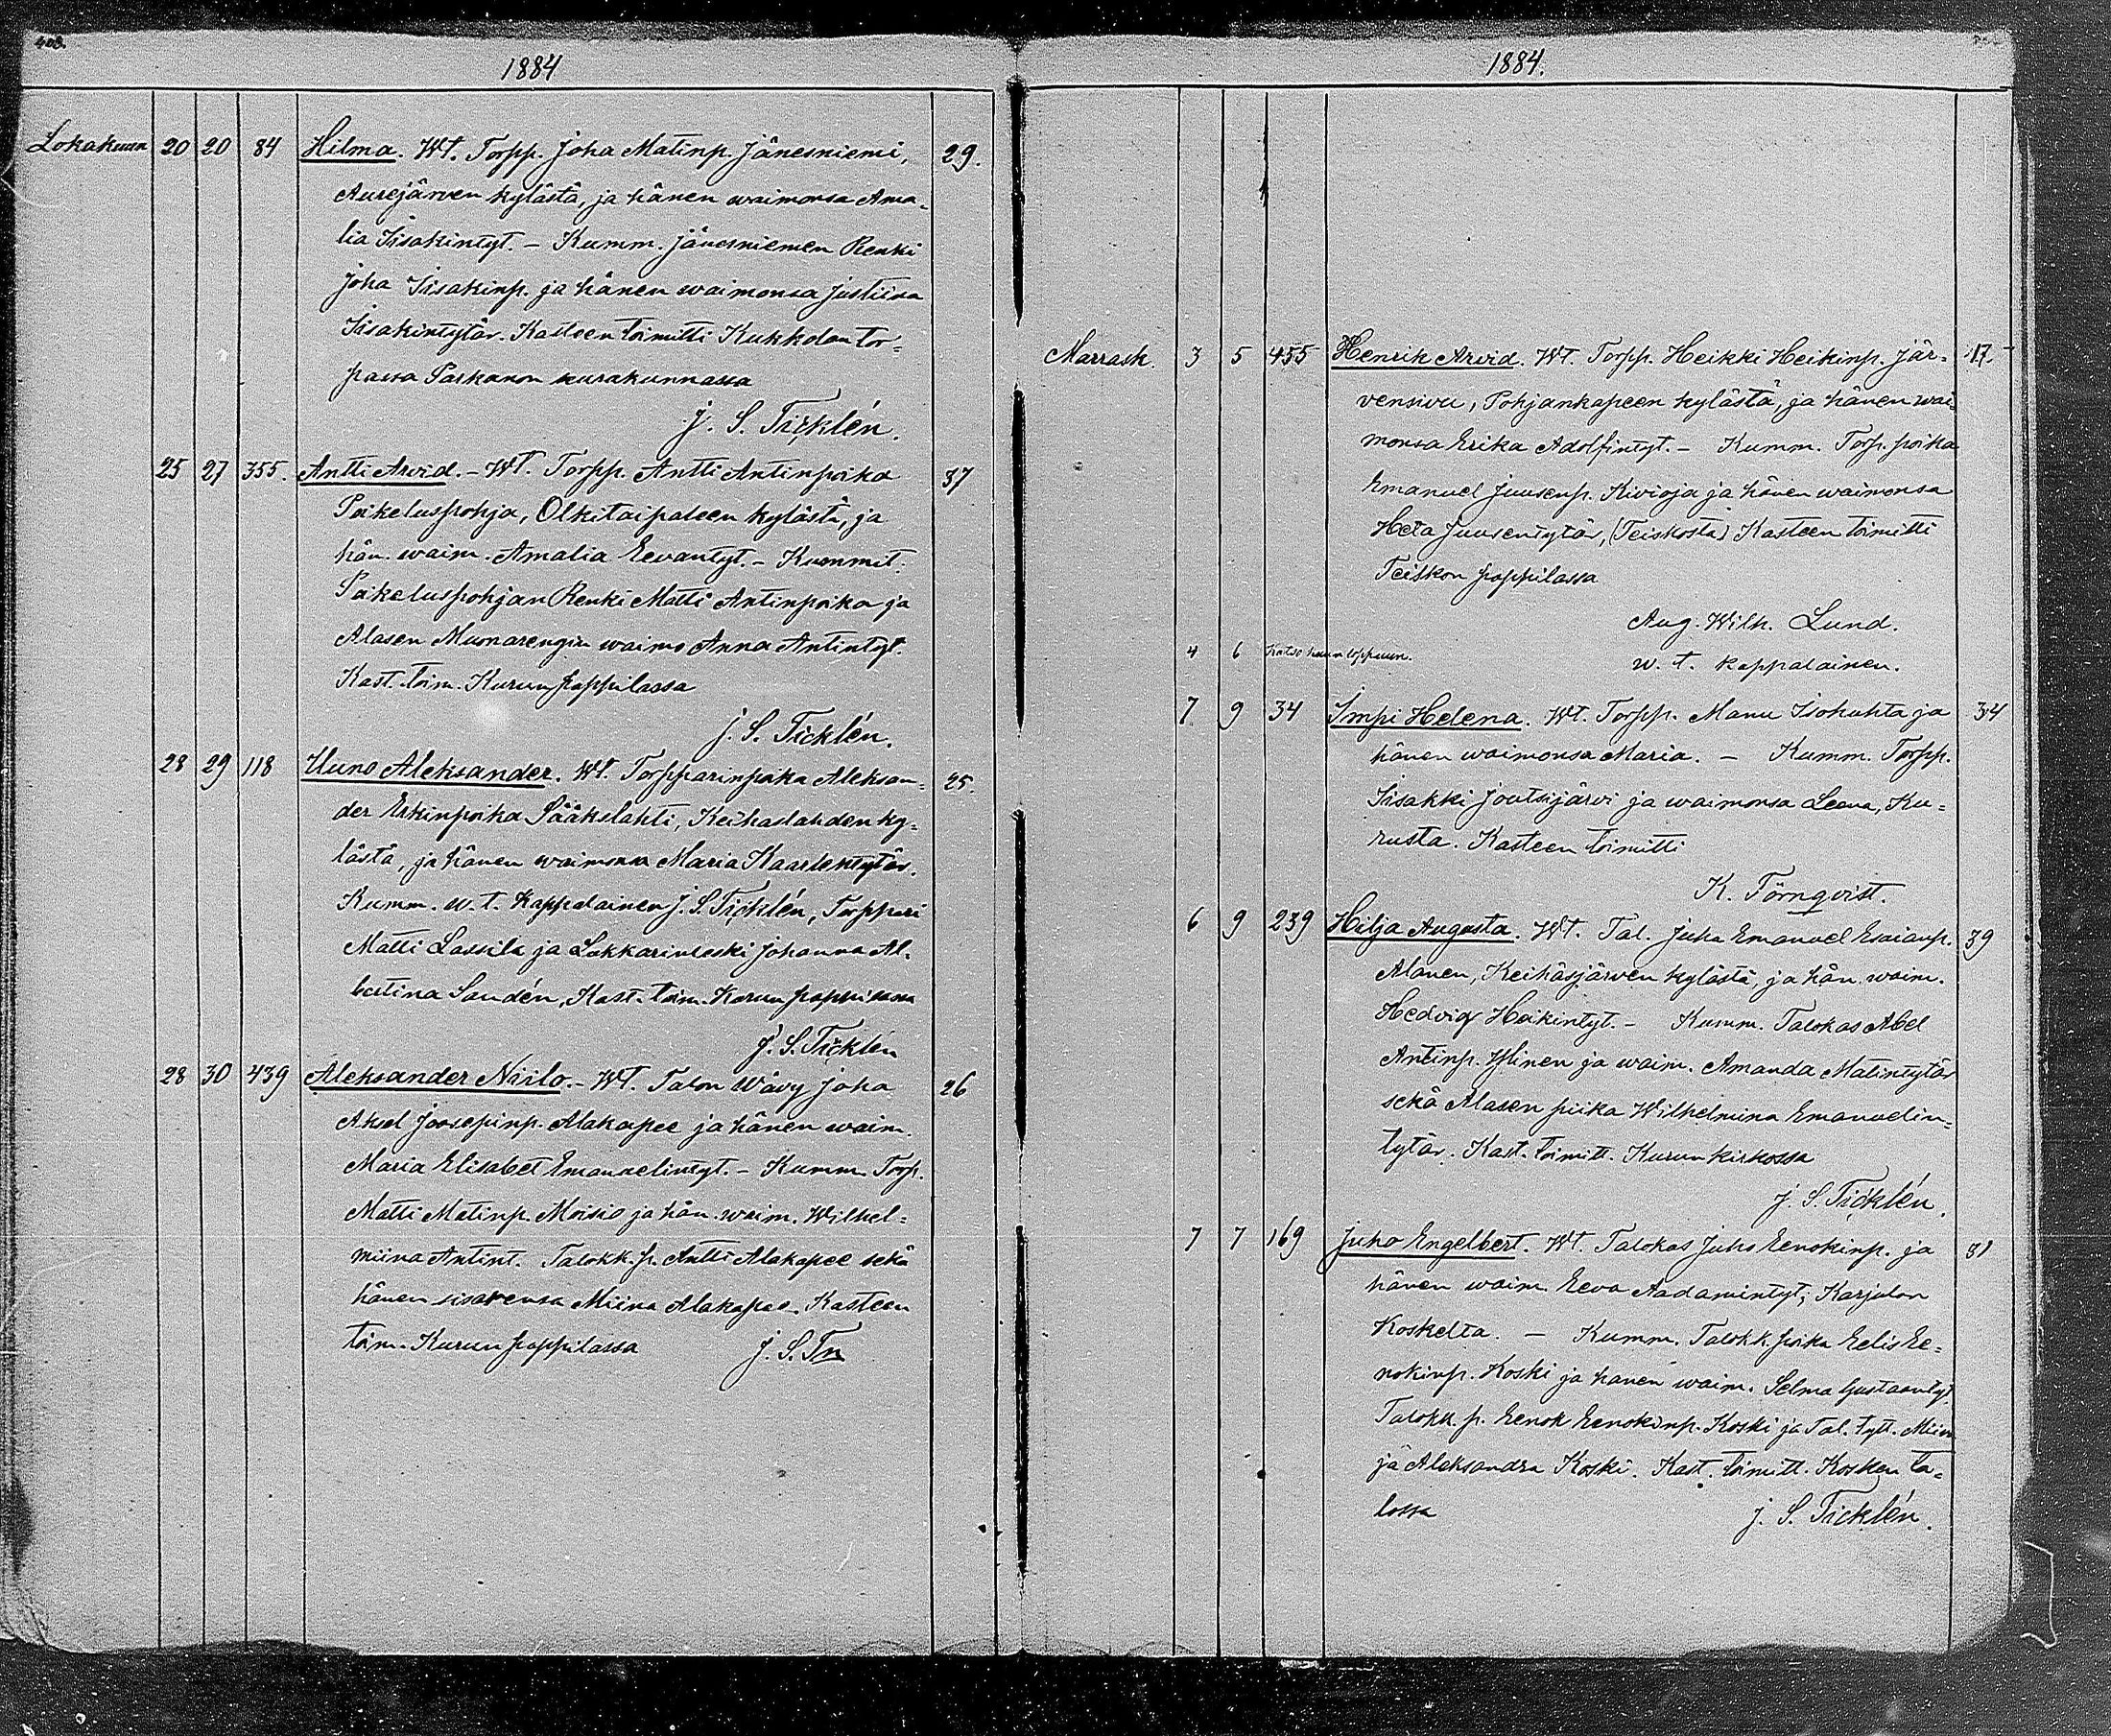 408.
1884
Lokakuun 20 20 84 Hilma. Wt. Torpp. Joha Matinp. Jänesniemi, 29.
Aurejärven kylästä, ja hänen waimonsa Ama-
lia Iisakintyt. - Kumm. Jänesniemen Renki
Joha Iisakinp. ja hänen waimonsa Justiina
Iisakintytär. Kasteen toimitti Kukkolan tor-
passa Parkanon seurakunnassa
J. S. Ticklén.
25 27 355. Antti Arvid. - Wt. Torpp. Antti Antinpoika 37
Poikeluspohja, Olkitaipaleen kylästä, ja
hän. waim. Amalia Eevantyt. - Kummit:
Poikeluspohjan Renki Matti Antinpoika ja
Alasen Muonarengin waimo Anna Antintyt.
Kast. toim. Kurun pappilassa
J. S. Ticklén.
28 29 118 Uuno Aleksander. Wt. Torpparinpoika Aleksan- 25.
der Erkinpoika Sääkslahti, Keihaslahden ky-
lästä, ja hänen waimonsa Maria Kaarlentytär.
Kumm. w. t. Kappalainen J. S. Ticklén, Torppari
Matti Lassila ja Lukkarinleski Johanna Al-
bertina Sandén, Kast. toim. Kurun pappilassa
J. S. Ticklén
28 30 439 Aleksander Niilo. - Wt. Talon Wävy Joha 26
Aksel Joosepinp. Alakapee ja hänen waim.
Maria Elisabet Emanuelintyt. - Kumm. Torp.
Matti Matinp. Moisio ja hän. waim. Wilhel-
miina Antint. Talokk. p. Antti Alakapee sekä
hänen sisarensa Miina Alakapee. Kasteen
toim. Kurun pappilassa J. S. Tn
1884.
Marrask. 3 5 455 Henrik Arvid. Wt. Torpp. Heikki Heikinp. Jär- 17
vensivu, Pohjankapeen kylästä, ja hänen wai-
monsa Erika Adolfintyt. - Kumm. Torp. poika
Emanuel Juusenp. Kivioja ja hänen waimonsa
Heta Juusentytär, (Teiskosta) Kasteen toimitti
Teiskon pappilassa
Aug. Wilh. Lund.
w. t. kappalainen.
4 6 Katso kuun loppuun.
7 9 34 Impi Helena. Wt. Torpp. Manu Isokuhta ja 34
hänen waimonsa Maria. - Kumm. Torpp.
Iisakki Joutsijärvi ja waimonsa Leena, Ku-
rusta. Kasteen toimitti
K. Törnqvist.
6 9 239 Hilja Augusta. Wt. Tal. Juha Emanuel Esaianp. 39
Alanen, Keihäsjärven kylästä, ja hän. waim.
Hedvig Heikintyt. - Kumm. Talokas Abel
Antinp. Ylinen ja waim. Amanda Matintytär
sekä Alasen piika Wilhelmina Emanuelin-
tytär. Kast. toimitt. Kurun kirkossa
J. S. Ticklén.
7 7 169 Juho Engelbert. Wt. Talokas Juho Eenokinp. ja 31
hänen waim. Eeva Aadamintyt, Karjulan
Koskelta. - Kumm. Talokk. poika Eelis Ee-
nokinp. Koski ja hänen waim. Selma Gustaavtyt.
Talokk. p. Eenok Eenokinp. Koski ja Tal. tytt. Miina
ja Aleksandra Koski. Kast. toimitt. Kosken ta-
lossa J. S. Ticklén.